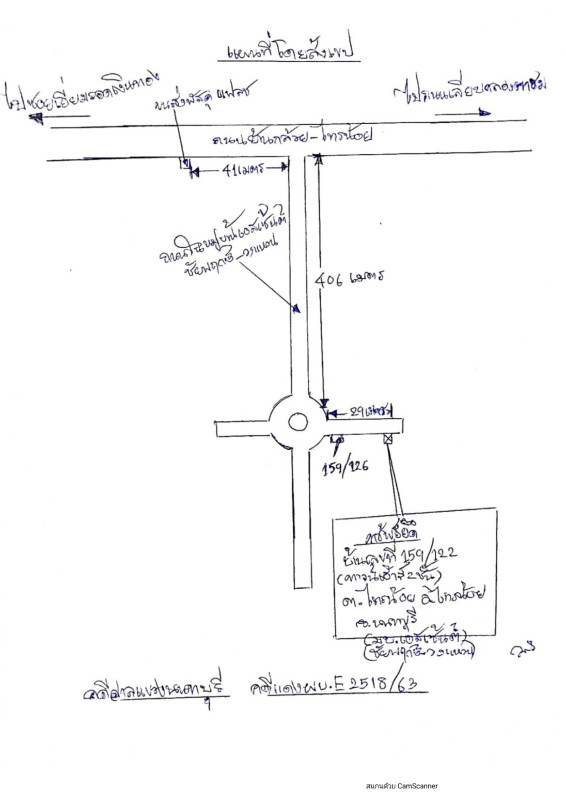 แผนที่โดยสังเขป
ไปซอยเอี่ยมรอด
ขนส่งพัสดุ แฟลช
ไปถนนเลียบคลอง
ถนนบ้านกล้วย-ไทรน้อย
41 เมตร
ถนนในหมู่บ้านเอสเซ้นต์
ชัยพฤกษ์-วงแหวน
406 เมตร
29 เมตร
159/126
ทรัพย์ยึด
บ้านเลขที่ 159/122
(ทาวน์เฮ้าส์ 2 ชั้น)
ต.ไทรน้อย อ.ไทรน้อย
จ.นนทบุรี
(มบ.เอสเซ้นต์)
(ชัยพฤกษ์-วงแหวน)
คดีศาลแขวงนนทบุรี คดีแดง ผบ.E 2518/63
สแกนด้วย CamScanner